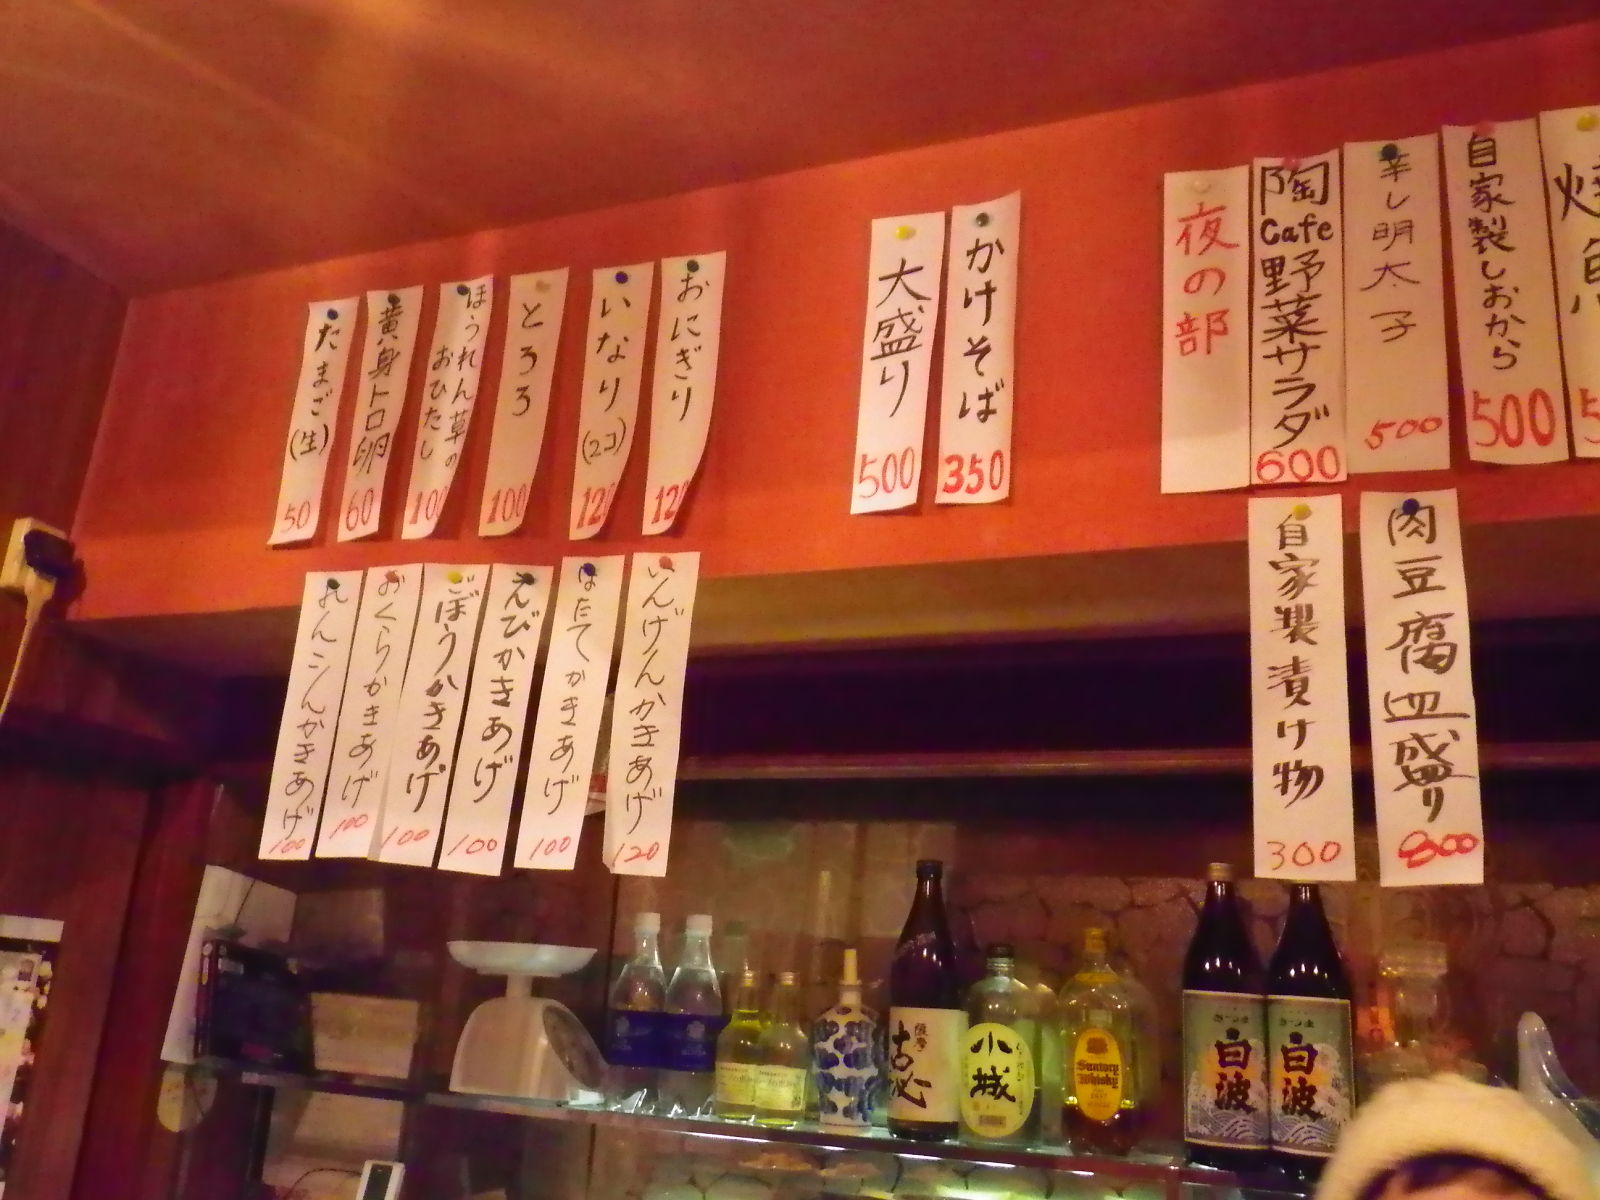 たまご(生)
50
黄身トロ卵
60
ほうれん草の
おひたし
100
とろろ
100
いなり(2コ)
120
おにぎり
120
大盛り
500
かけそば
350
夜の部
陶
Cafe
野菜サラダ
600
辛し明太子
500
自家製しおから
500
焼魚
れんこんかきあげ
100
おくらかきあげ
100
ごぼうかきあげ
100
えびかきあげ
100
ほたてかきあげ
100
いんげんかきあげ
120
自家製漬け物
300
肉豆腐皿盛り
800
薩摩
古秘
小城
Suntory
Whisky
さつま
白波
さつま
白波